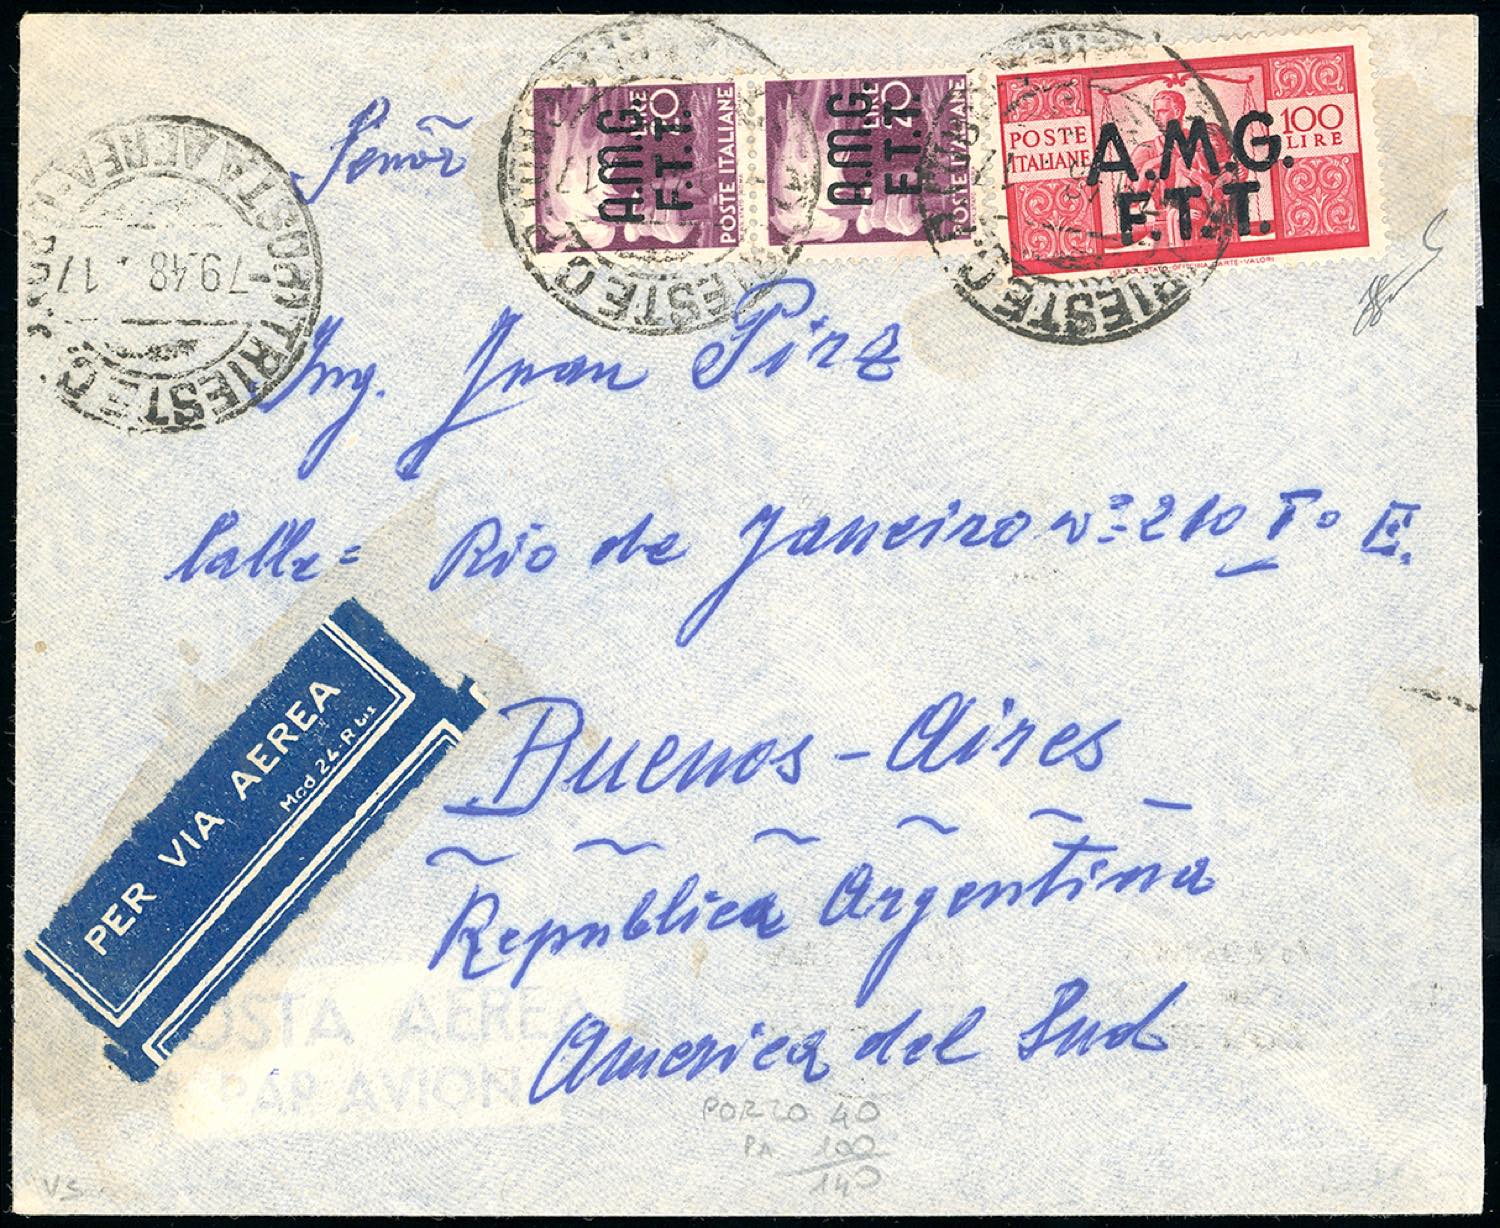 Señor
LIRE
20
A.M.G.
F.T.T.
POSTE ITALIANE
LIRE
20
A.M.G.
F.T.T.
POSTE ITALIANE
POSTE
ITALIANE
100
LIRE
A.M.G.
F.T.T.
IST. POL. STATO-OFFICINA CARTE-VALORI
POSTA AEREA
7.9.48. 17
TRIESTE C.
TRIESTE C
RIESTE C
Ing. Juan Pirz
Calle= Rio de Janeiro nº=210 Iº E.
PER VIA AEREA
Mod 24-R bis
Buenos-Aires
Republica Argentina
America del Sud
POSTA AEREA
PAR AVION
PORZO 40
PA 100
140
VS